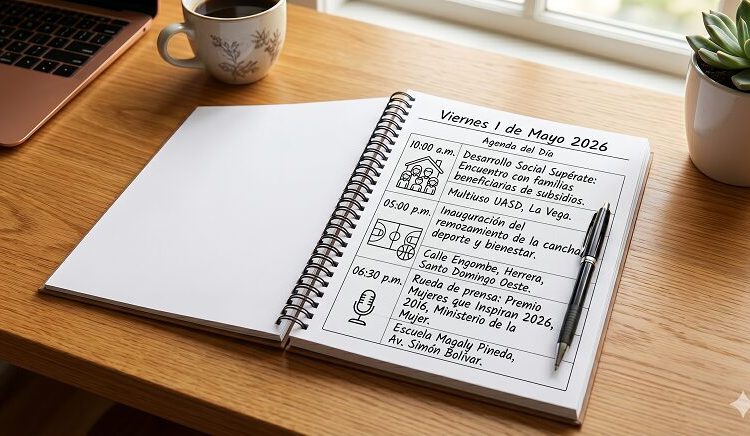 Viernes 1 de Mayo 2026
Agenda del Día
10:00 a.m.
Desarrollo Social Supérate:
Encuentro con familias
beneficiarias de subsidios.
Multiuso UASD, La Vega.
05:00 p.m.
Inauguración del
remozamiento de la cancha
deporte y bienestar.
Calle Engombe, Herrera,
Santo Domingo Oeste.
06:30 p.m.
Rueda de prensa: Premio
Mujeres que Inspiran 2026,
2016, Ministerio de la
Mujer.
Escuela Magaly Pineda,
Av. Simón Bolívar.